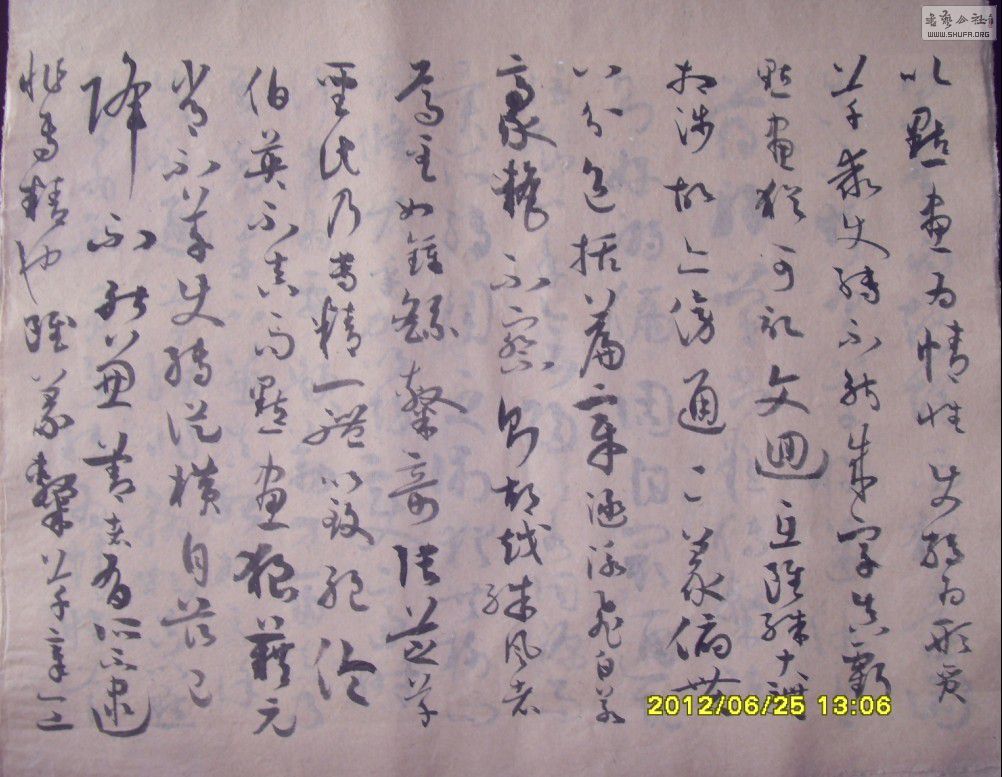 以點畫為情性使轉為形質
草乖使轉不能成字真虧
點畫猶可記文迴互雖殊大體
相涉故亦傍通二篆俯貫
八分包括篇章涵泳飛白若
豪釐不察則胡越殊風者
焉至如鍾繇隸奇張芝草
聖此乃專精一體以致絕倫
伯英不真而點畫狼藉元
常不草使轉縱橫自茲已
降不能兼善者有所不逮
非專精也雖篆隸草章工
2012/06/25 13:06
書藝公社
WWW.SHUFA.ORG